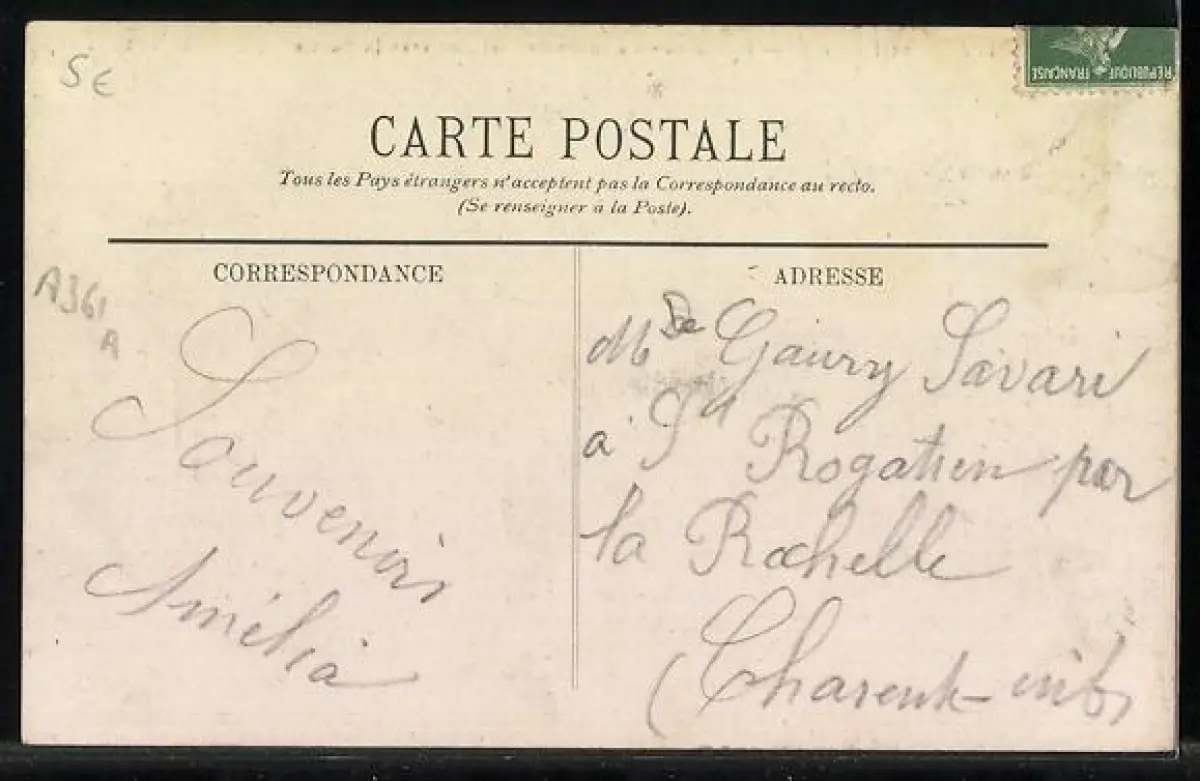 5 €
REPUBLIQUE FRANÇAISE
CARTE POSTALE
Tous les Pays étrangers n'acceptent pas la Correspondance au recto.
(Se renseigner à la Poste).
CORRESPONDANCE
A361
A
Souvenir
Amélia
ADRESSE
Gaury Savari
a St Rogatien par
la Rochelle
(Charente infr